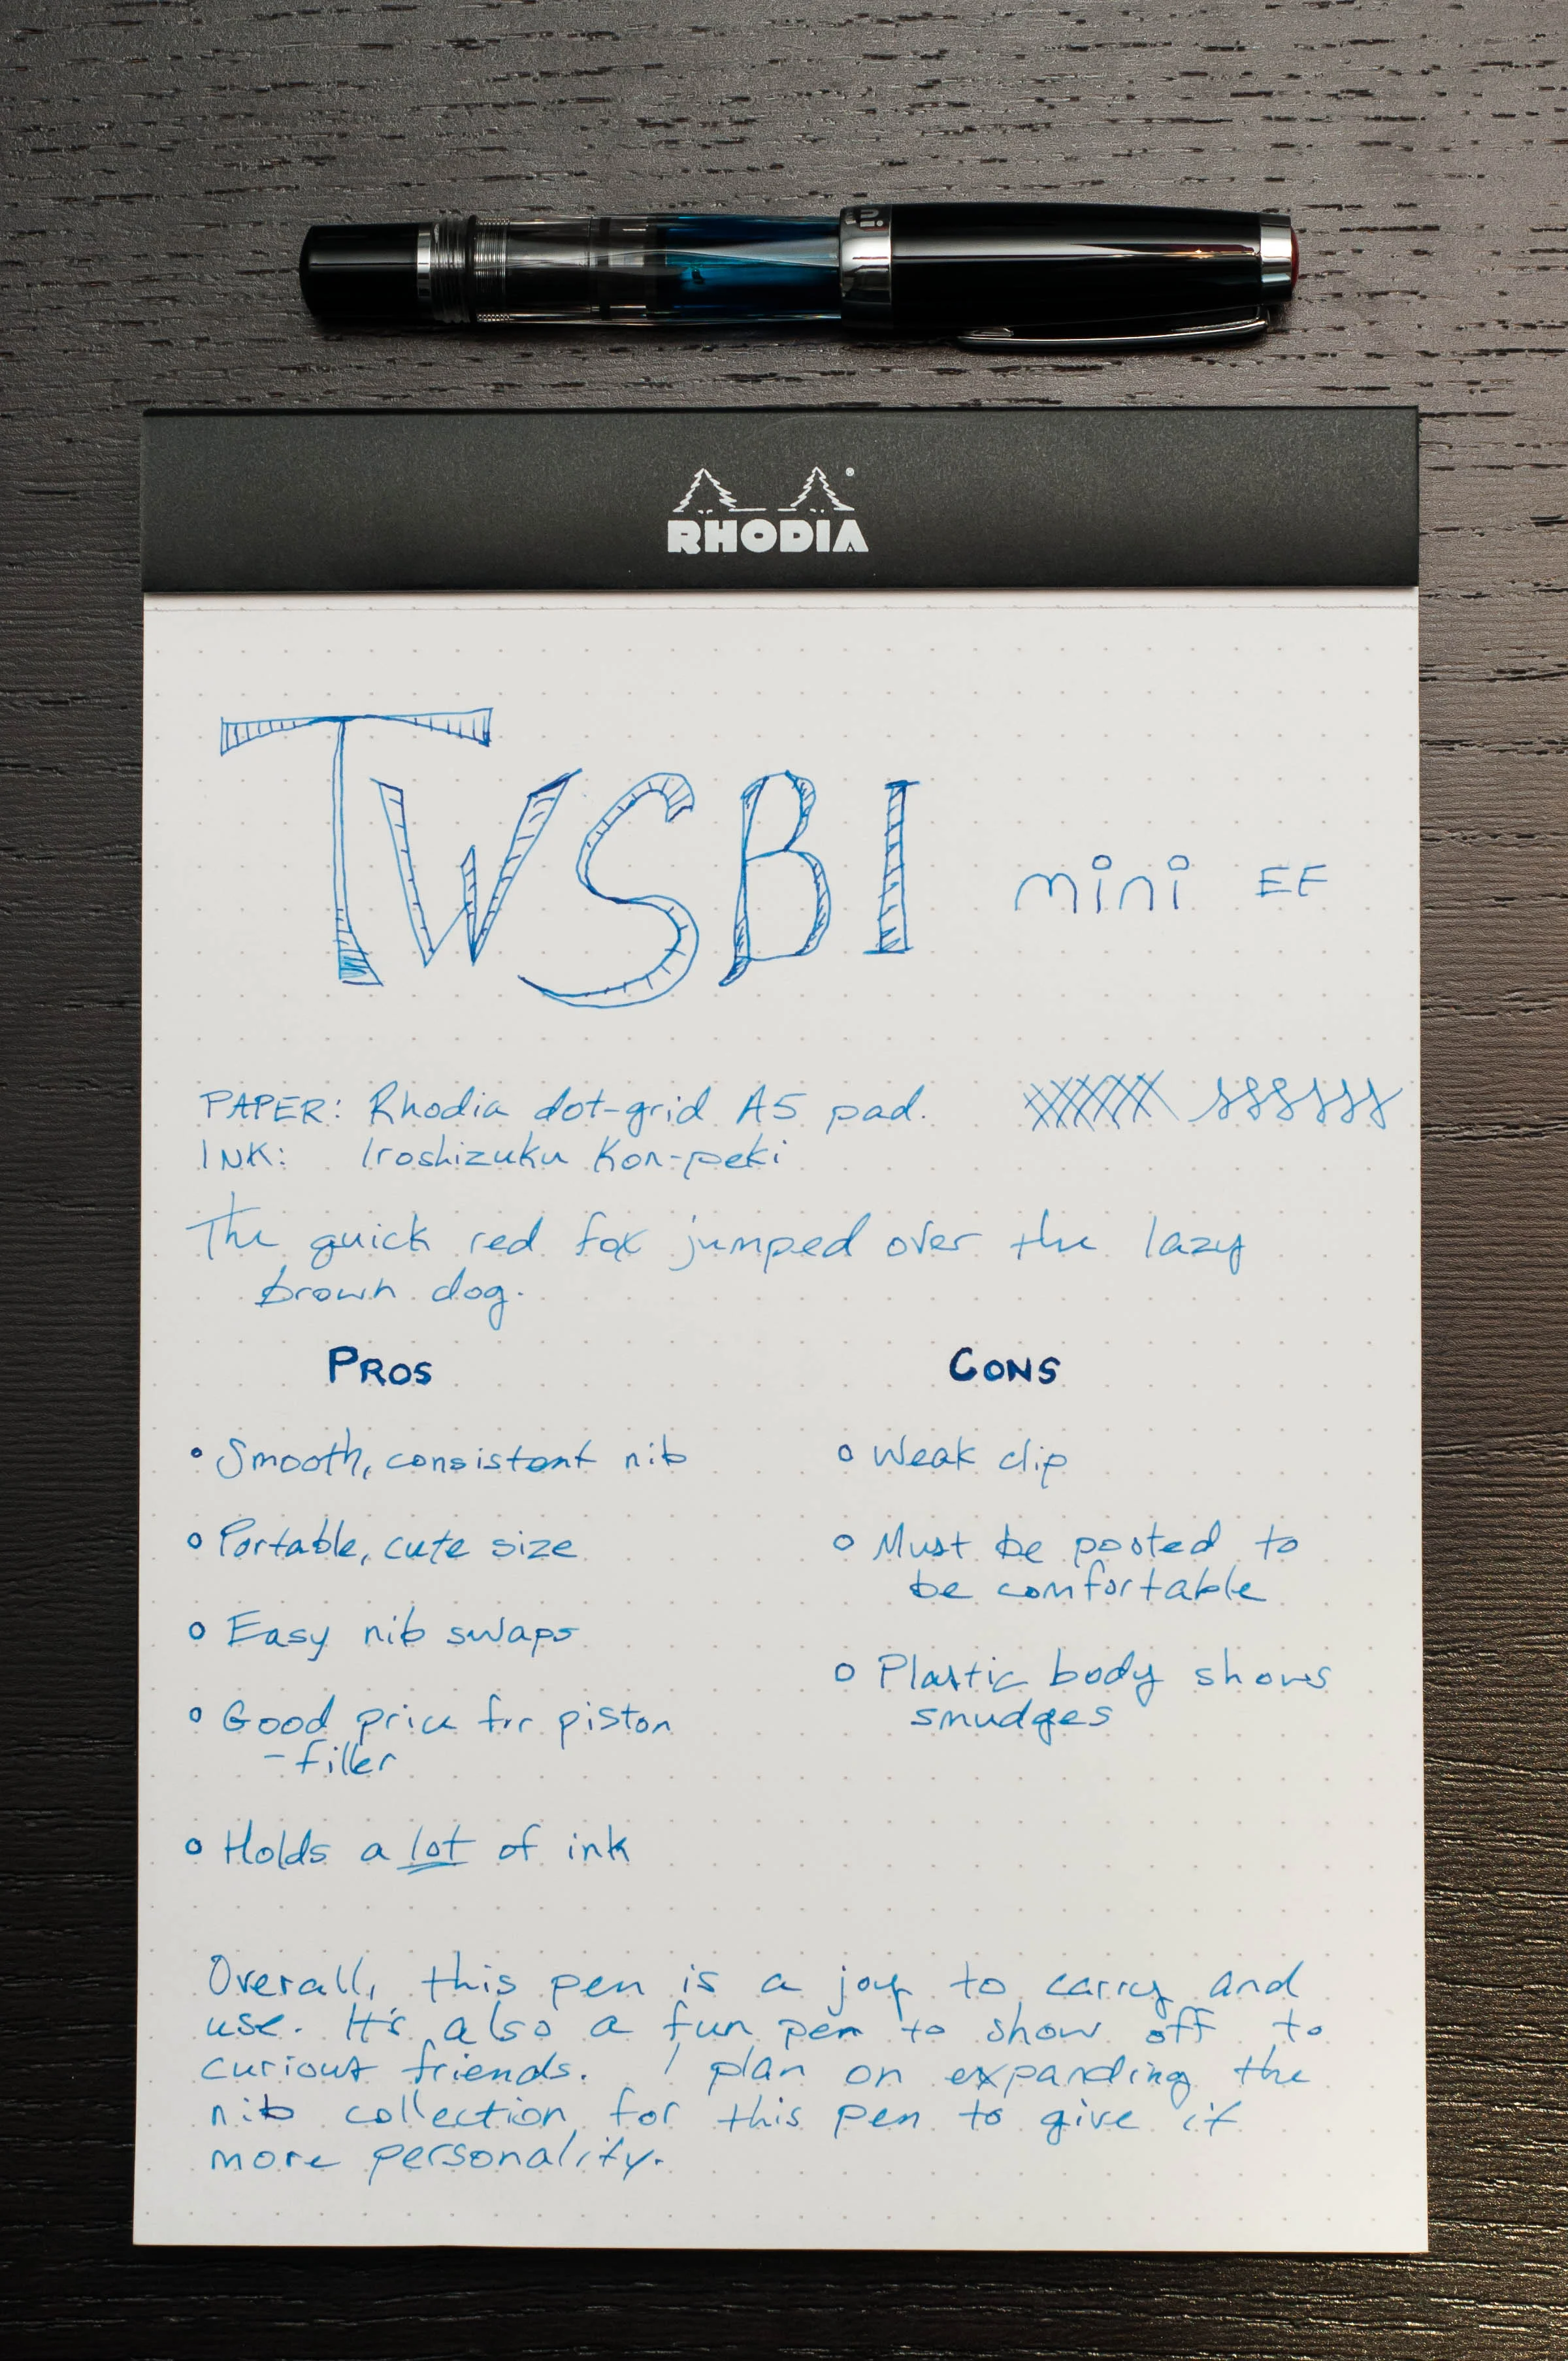 ni
RHODIA
TWSBI mini EF
PAPER: Rhodia dot-grid A5 pad.
INK: Iroshizuku Kon-peki
The quick red fox jumped over the lazy
brown dog.
PROS
CONS
Smooth, consistent nib
Portable, cute size
Easy nib swaps
Good price for piston
-filler
Holds a lot of ink
Weak clip
Must be posted to
be comfortable
Plastic body shows
smudges
Overall, this pen is a joy to carry and
use. It's also a fun pen to show off to
curious friends. I plan on expanding the
nib collection for this pen to give it
more personality.